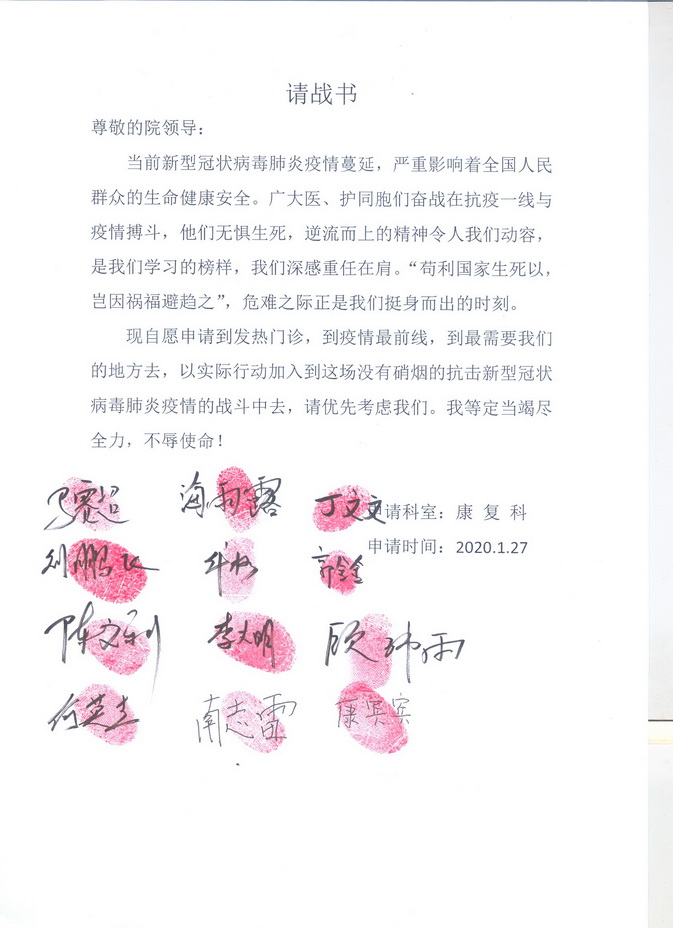 请战书
尊敬的院领导：
当前新型冠状病毒肺炎疫情蔓延，严重影响着全国人民
群众的生命健康安全。广大医、护同胞们奋战在抗疫一线与
疫情搏斗，他们无惧生死，逆流而上的精神令人我们动容，
是我们学习的榜样，我们深感重任在肩。“苟利国家生死以，
岂因祸福避趋之”，危难之际正是我们挺身而出的时刻。
现自愿申请到发热门诊，到疫情最前线，到最需要我们
的地方去，以实际行动加入到这场没有硝烟的抗击新型冠状
病毒肺炎疫情的战斗中去，请优先考虑我们。我等定当竭尽
全力，不辱使命！
海雨露 丁文文 申请科室：康 复 科
刘鹏飞 郭金金 申请时间：2020.1.27
陈文利 李文明 顾玮雨
何英杰 南志雷 康宾宾